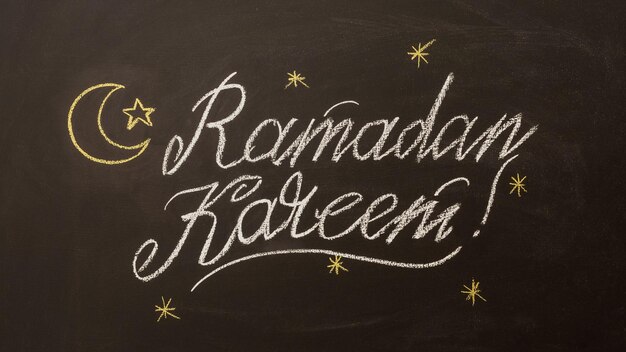 Ramadan
Kareem!